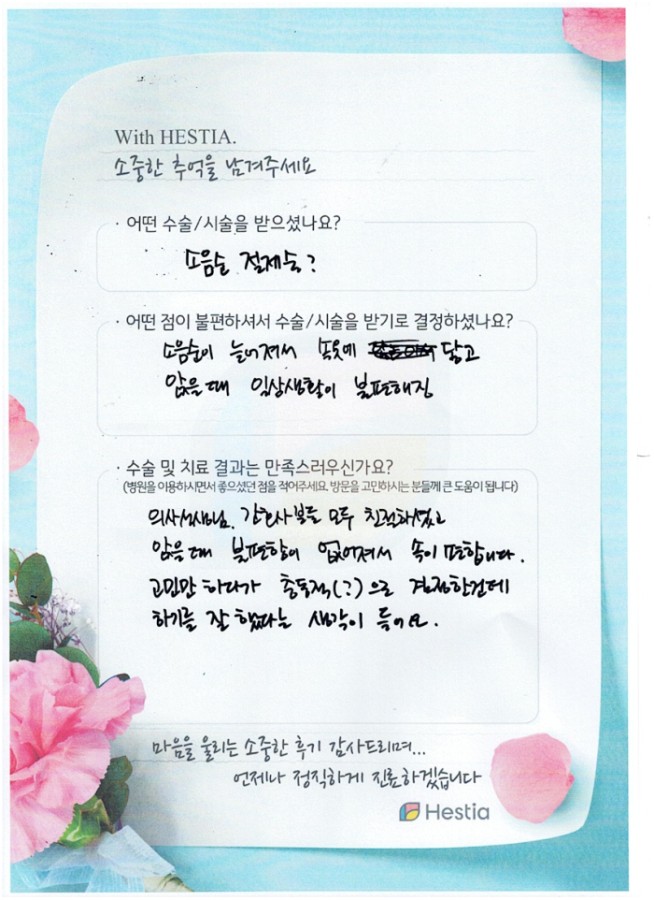 With HESTIA.
소중한 추억을 남겨주세요
· 어떤 수술/시술을 받으셨나요?
소음순 절제술?
· 어떤 점이 불편하셔서 수술/시술을 받기로 결정하셨나요?
소음순이 늘어져서 속옷에 닳고
앉을때 일상생활이 불편해짐
· 수술 및 치료 결과는 만족스러우신가요?
(병원을 이용하시면서 좋으셨던 점을 적어주세요. 방문을 고민하시는 분들께 큰 도움이 됩니다)
의사선생님, 간호사분들 모두 친절하셨고
앉을때 불편함이 없어져서 속이 편합니다.
고민만 하다가 충동적(?)으로 결정한건데
하기를 잘 했다는 생각이 들어요.
마음을 울리는 소중한 후기 감사드리며...
언제나 정직하게 진료하겠습니다
Hestia